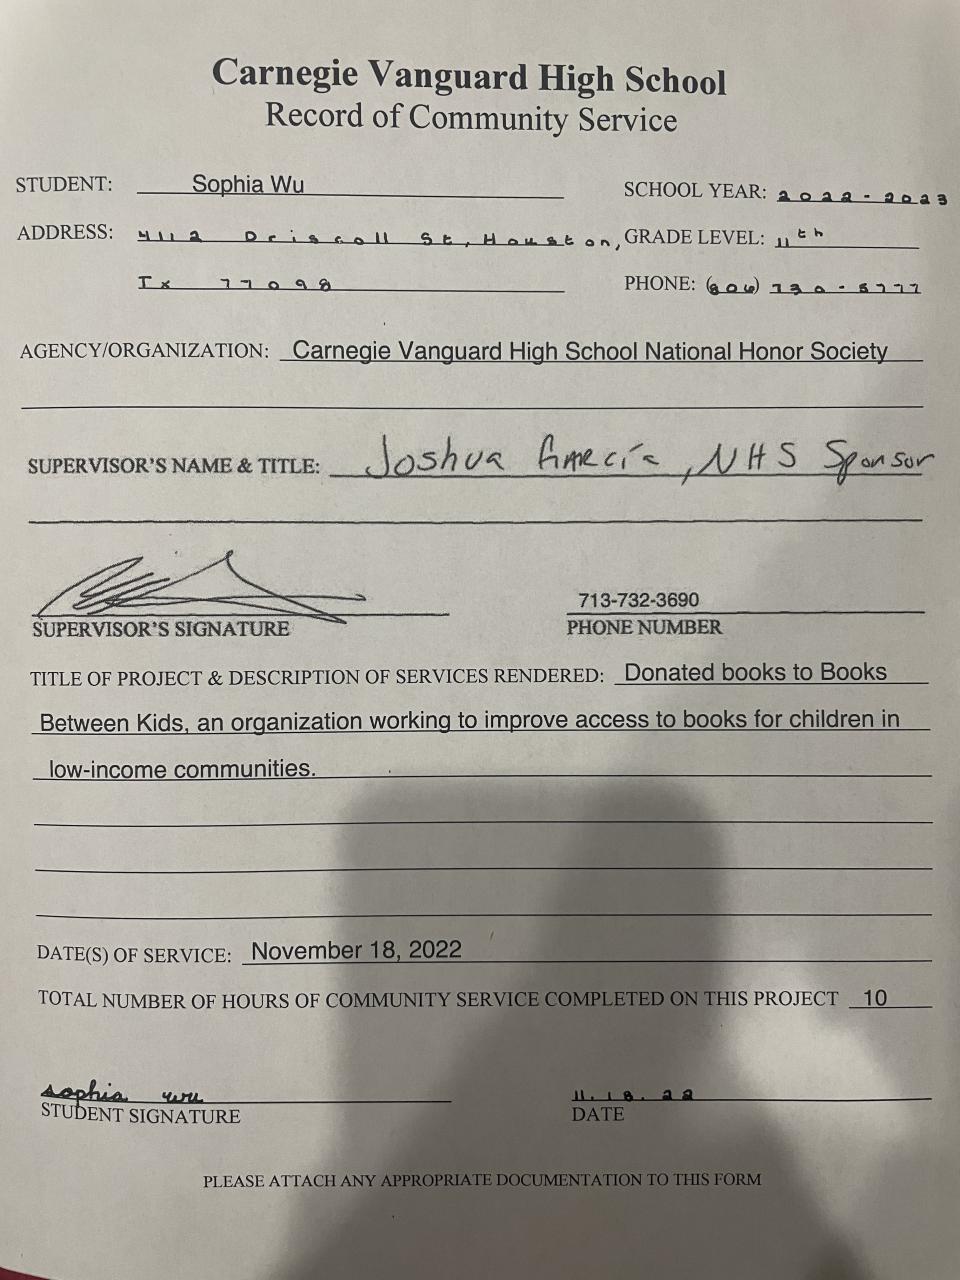 Carnegie Vanguard High School
Record of Community Service
STUDENT: Sophia Wu SCHOOL YEAR: 2022-2023
ADDRESS: 4112 Driscoll St, Houston, GRADE LEVEL: 11th
Tx 77098 PHONE: (806) 730-5777
AGENCY/ORGANIZATION: Carnegie Vanguard High School National Honor Society
SUPERVISOR'S NAME & TITLE: Joshua García, NHS Sponsor
713-732-3690
SUPERVISOR'S SIGNATURE PHONE NUMBER
TITLE OF PROJECT & DESCRIPTION OF SERVICES RENDERED: Donated books to Books
Between Kids, an organization working to improve access to books for children in
low-income communities.
DATE(S) OF SERVICE: November 18, 2022
TOTAL NUMBER OF HOURS OF COMMUNITY SERVICE COMPLETED ON THIS PROJECT 10
sophia wu 11.18.22
STUDENT SIGNATURE DATE
PLEASE ATTACH ANY APPROPRIATE DOCUMENTATION TO THIS FORM